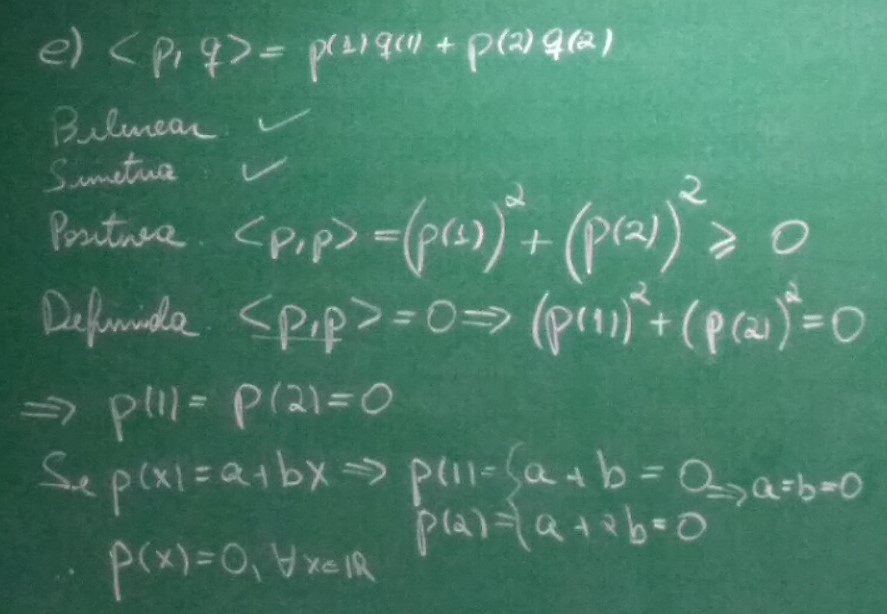 e) <p, q> = p(1)q(1) + p(2)q(2)
Bilinear ✓
Simetria ✓
Positiva. <p,p> = (p(1))² + (p(2))² ⩾ 0
Definida. <p,p> = 0 ⇒ (p(1))² + (p(2))² = 0
⇒ p(1) = p(2) = 0
Se p(x) = a+bx ⇒ p(1) = { a + b = 0 ⇒ a=b=0
p(2) = { a + 2b = 0
∴ p(x) = 0, ∀x∈ℝ